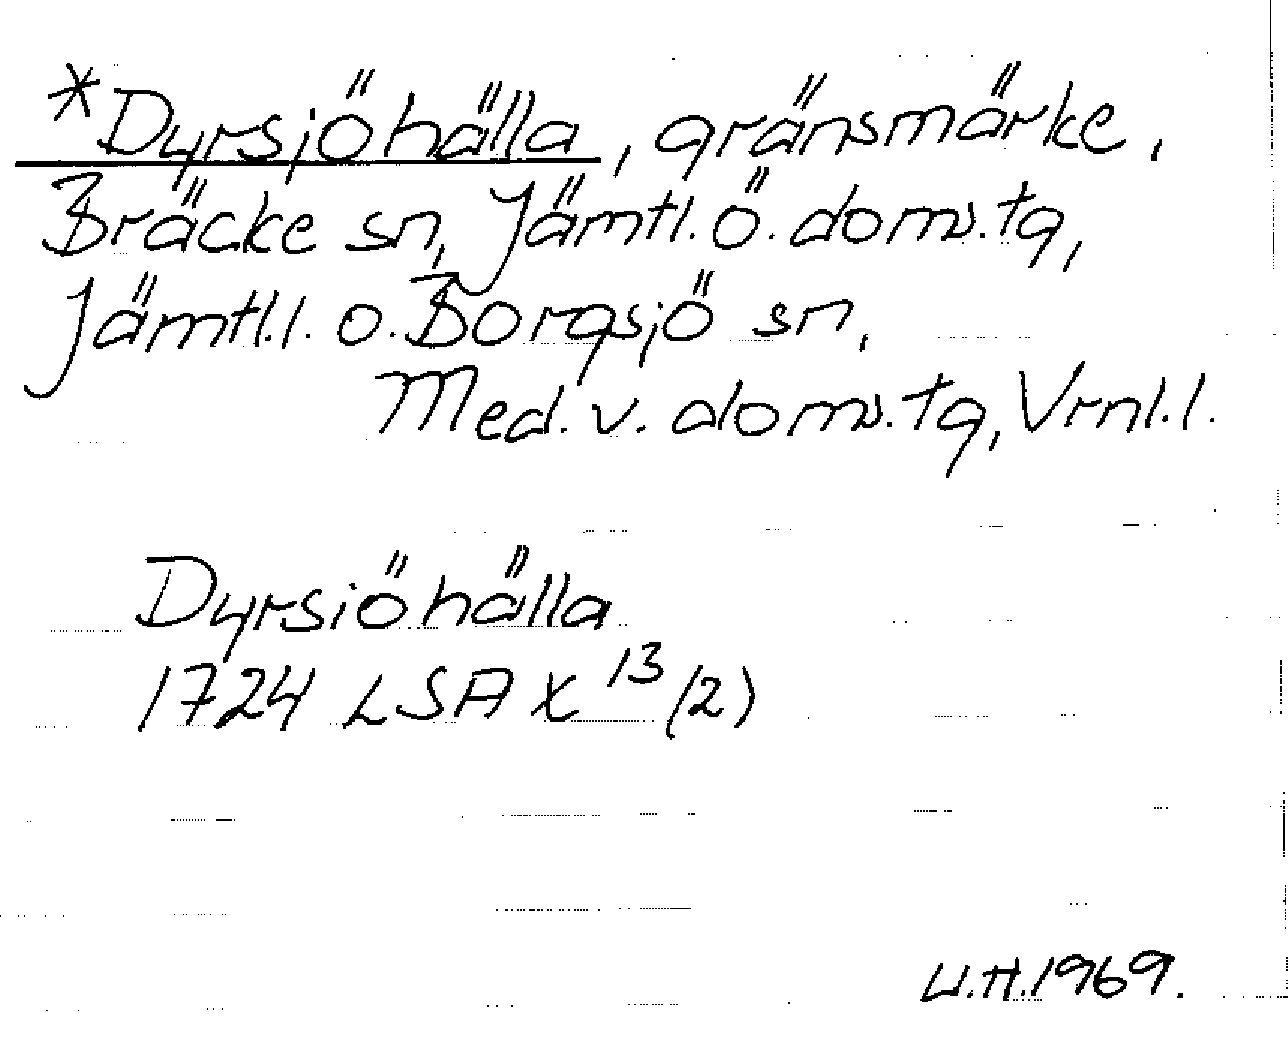 *Dyrsjöhälla, gränsmärke,
Bräcke sn, Jämtl.ö.doms.tg,
Jämtl.l. o.Borgsjö sn,
Med.v. doms.tg, Vrnl.l.
Dyrsiöhälla
1724 LSA X 13 (2)
U.H.1969.